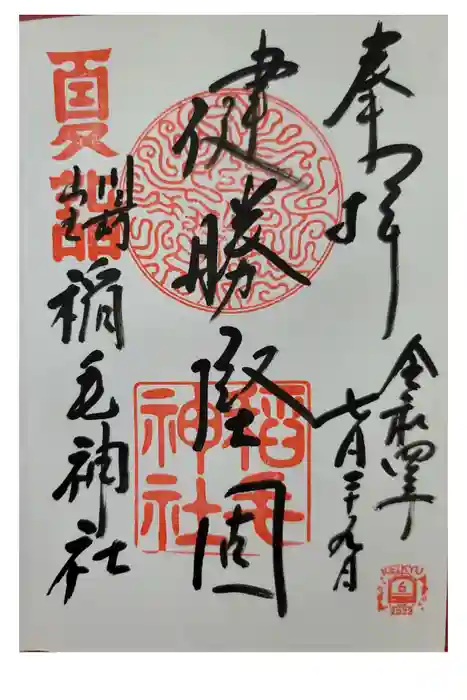 奉拝
令和四年
七月二十九日
健勝堅固
夏詣
稲毛神社
稲毛神社
KEIKYU
6